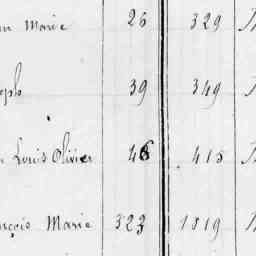 Marie 26 329
39 349
Louis Olivier 46 415
Marie 323 1819